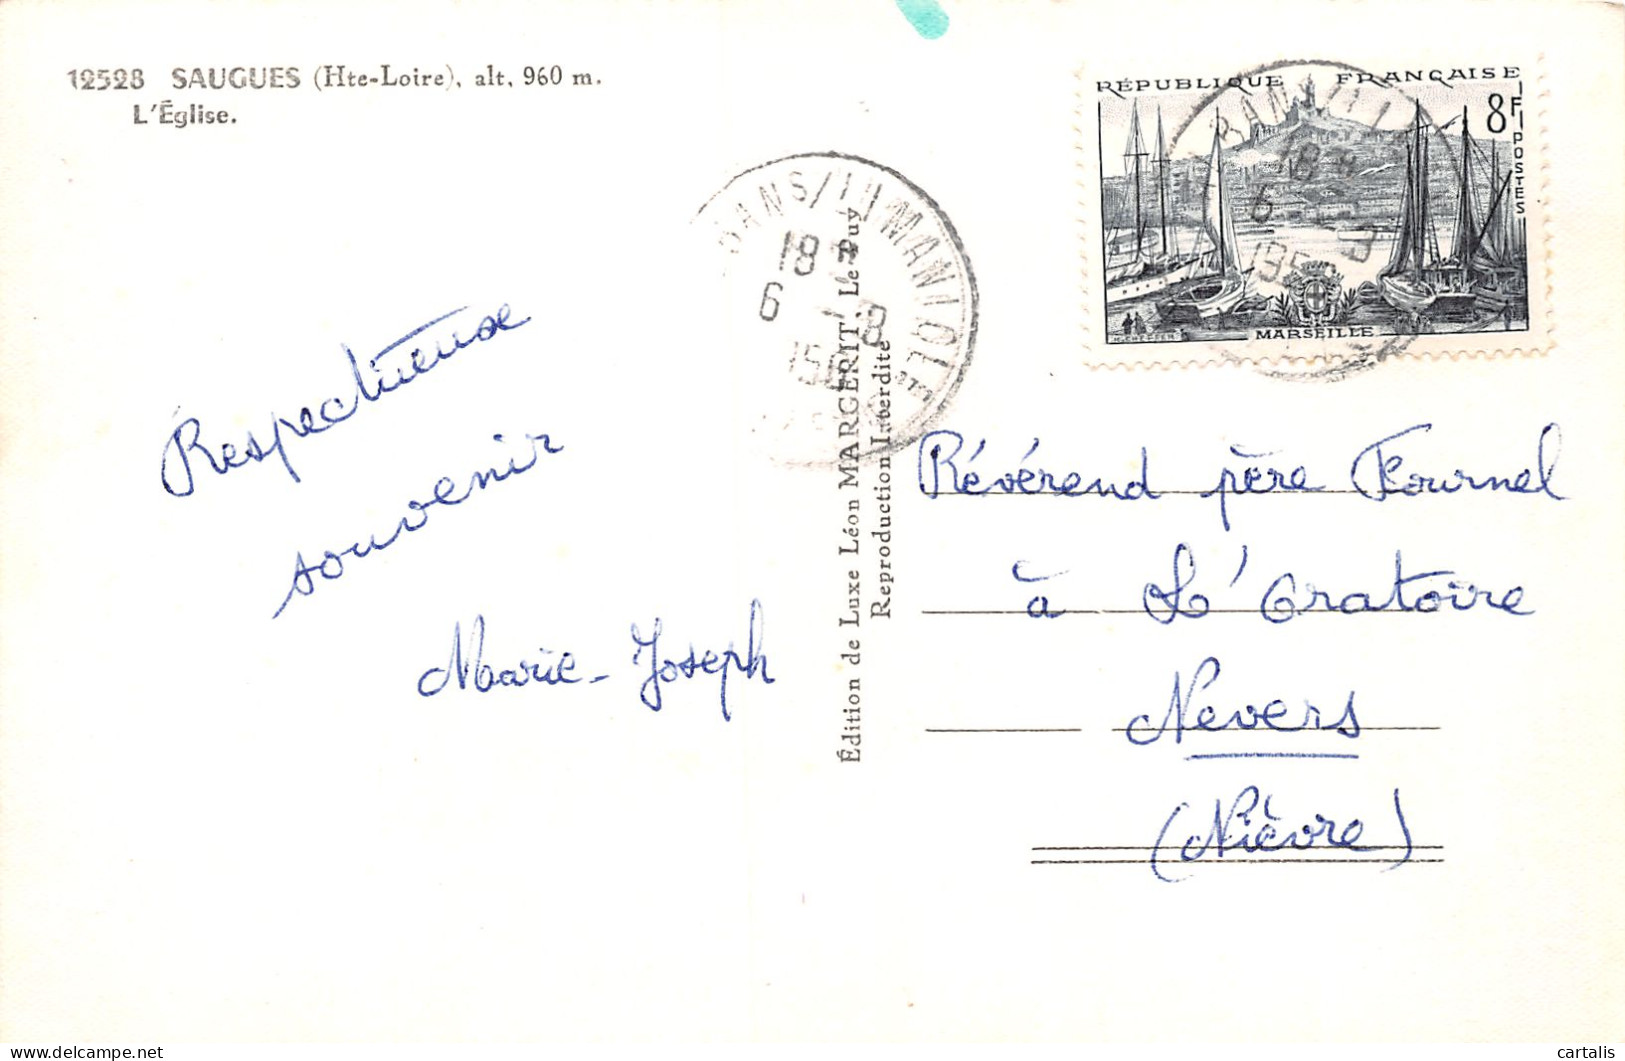 12528 SAUGUES (Hte-Loire), alt. 960 m.
L'Église.
Respectueuse
souvenir
Marie-Joseph
Édition de Luxe Léon MARGERIT, Le Puy
Reproduction Interdite
18
6 - 8
RÉPUBLIQUE FRANÇAISE
8F
POSTES
MARSEILLE
18
6 - 8
Révérend père Fournel
à L'Oratoire
Nevers
(Nièvre)
cartalis